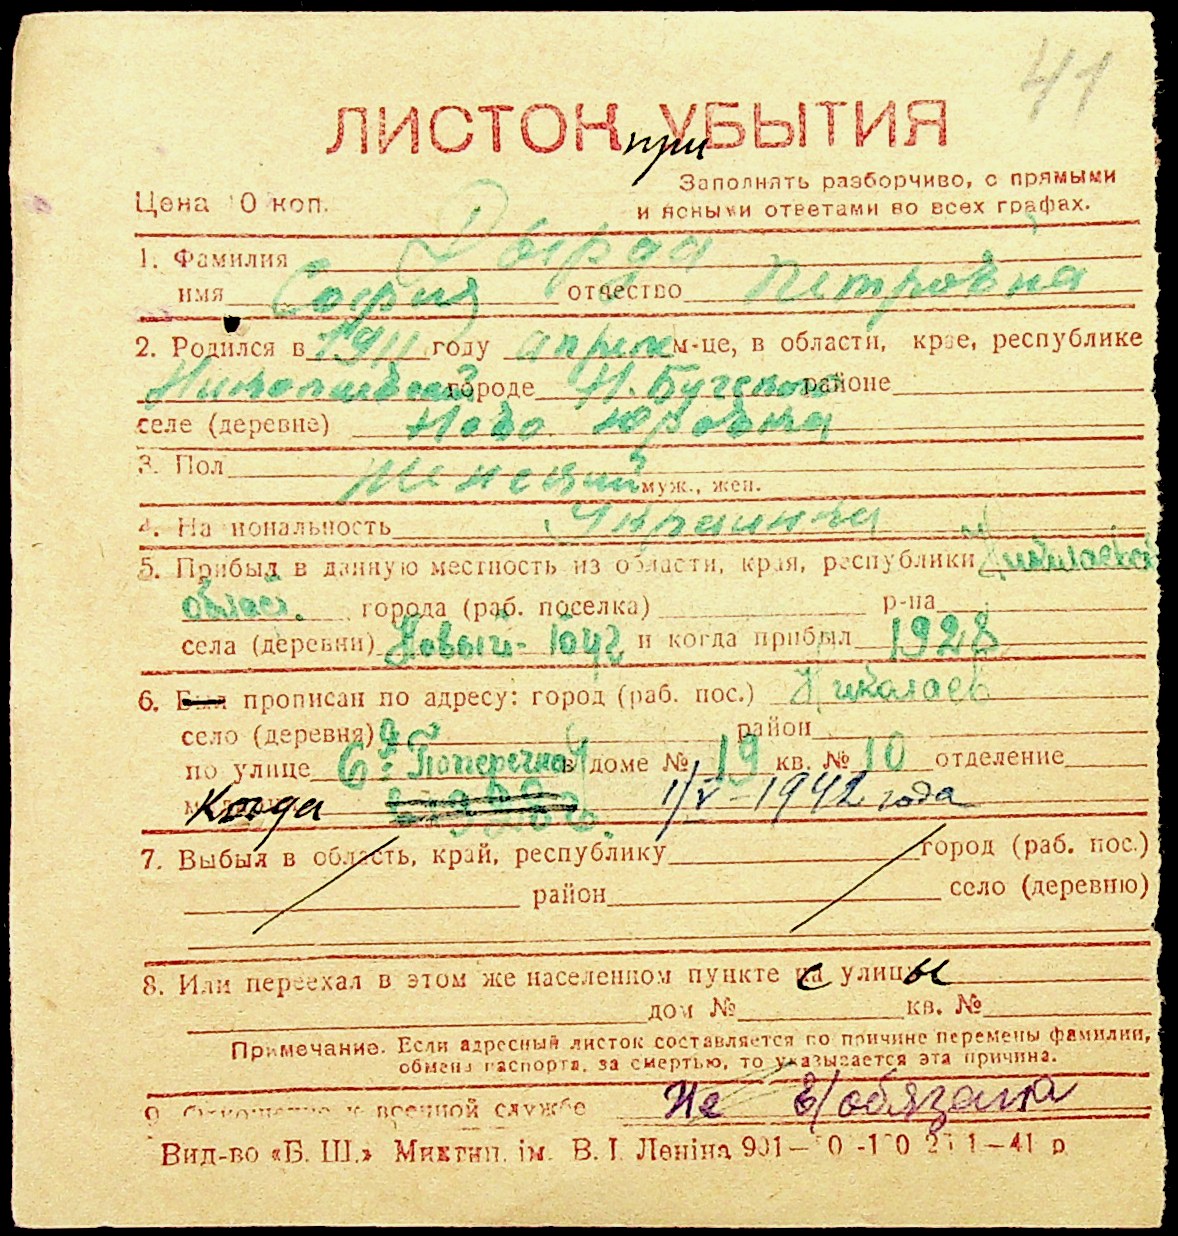 41
ЛИСТОК при УБЫТИЯ
Заполнять разборчиво, с прямыми
Цена 10 коп. и ясными ответами во всех графах.
1. Фамилия
имя София отчество Петровна
2. Родился в 1911 году апреля м-це, в области, крае, республике
городе Н. Бугском районе
селе (деревне) Ново Юровка
3. Пол Женский муж., жен.
4. Национальность Украинка
5. Прибыл в данную местность из области, края, республики Николаевской
област. города (раб. поселка) р-на
села (деревни) Новый-Буг и когда прибыл 1928
6. Был прописан по адресу: город (раб. пос.) Николаев
село (деревня) район
по улице 6я Поперечная в доме № 19 кв. № 10 отделение
Когда 1/V-1942 года
7. Выбыл в область, край, республику город (раб. пос.)
район село (деревню)
8. Или переехал в этом же населенном пункте с улицы
дом № кв. №
Примечание. Если адресный листок составляется по причине перемены фамилии,
обмена паспорта, за смертью, то указывается эта причина.
9. Отношение к военной службе Не в/обязана
Вид-во «Б. Ш.» Миктип. ім. В. І. Леніна 901—